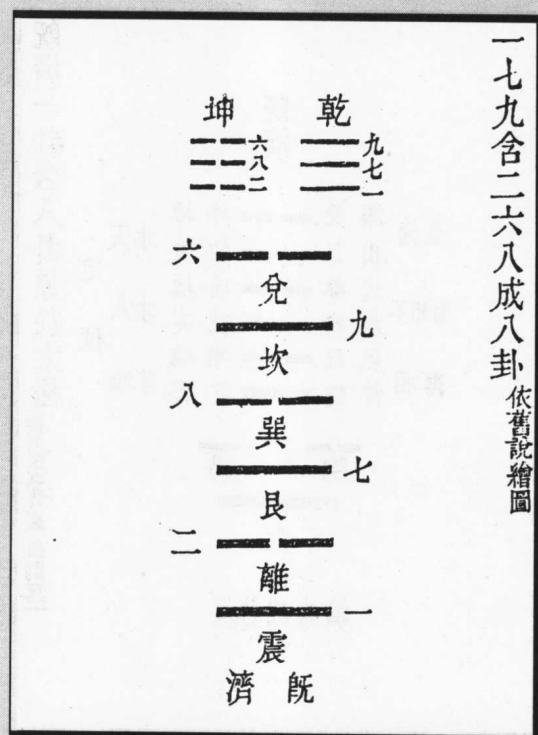 一七九含二六八成八卦 依舊說繪圖
乾
九七一
坤
六八二
六
兌
九
坎
八
巽
七
艮
二
離
一
震
既濟